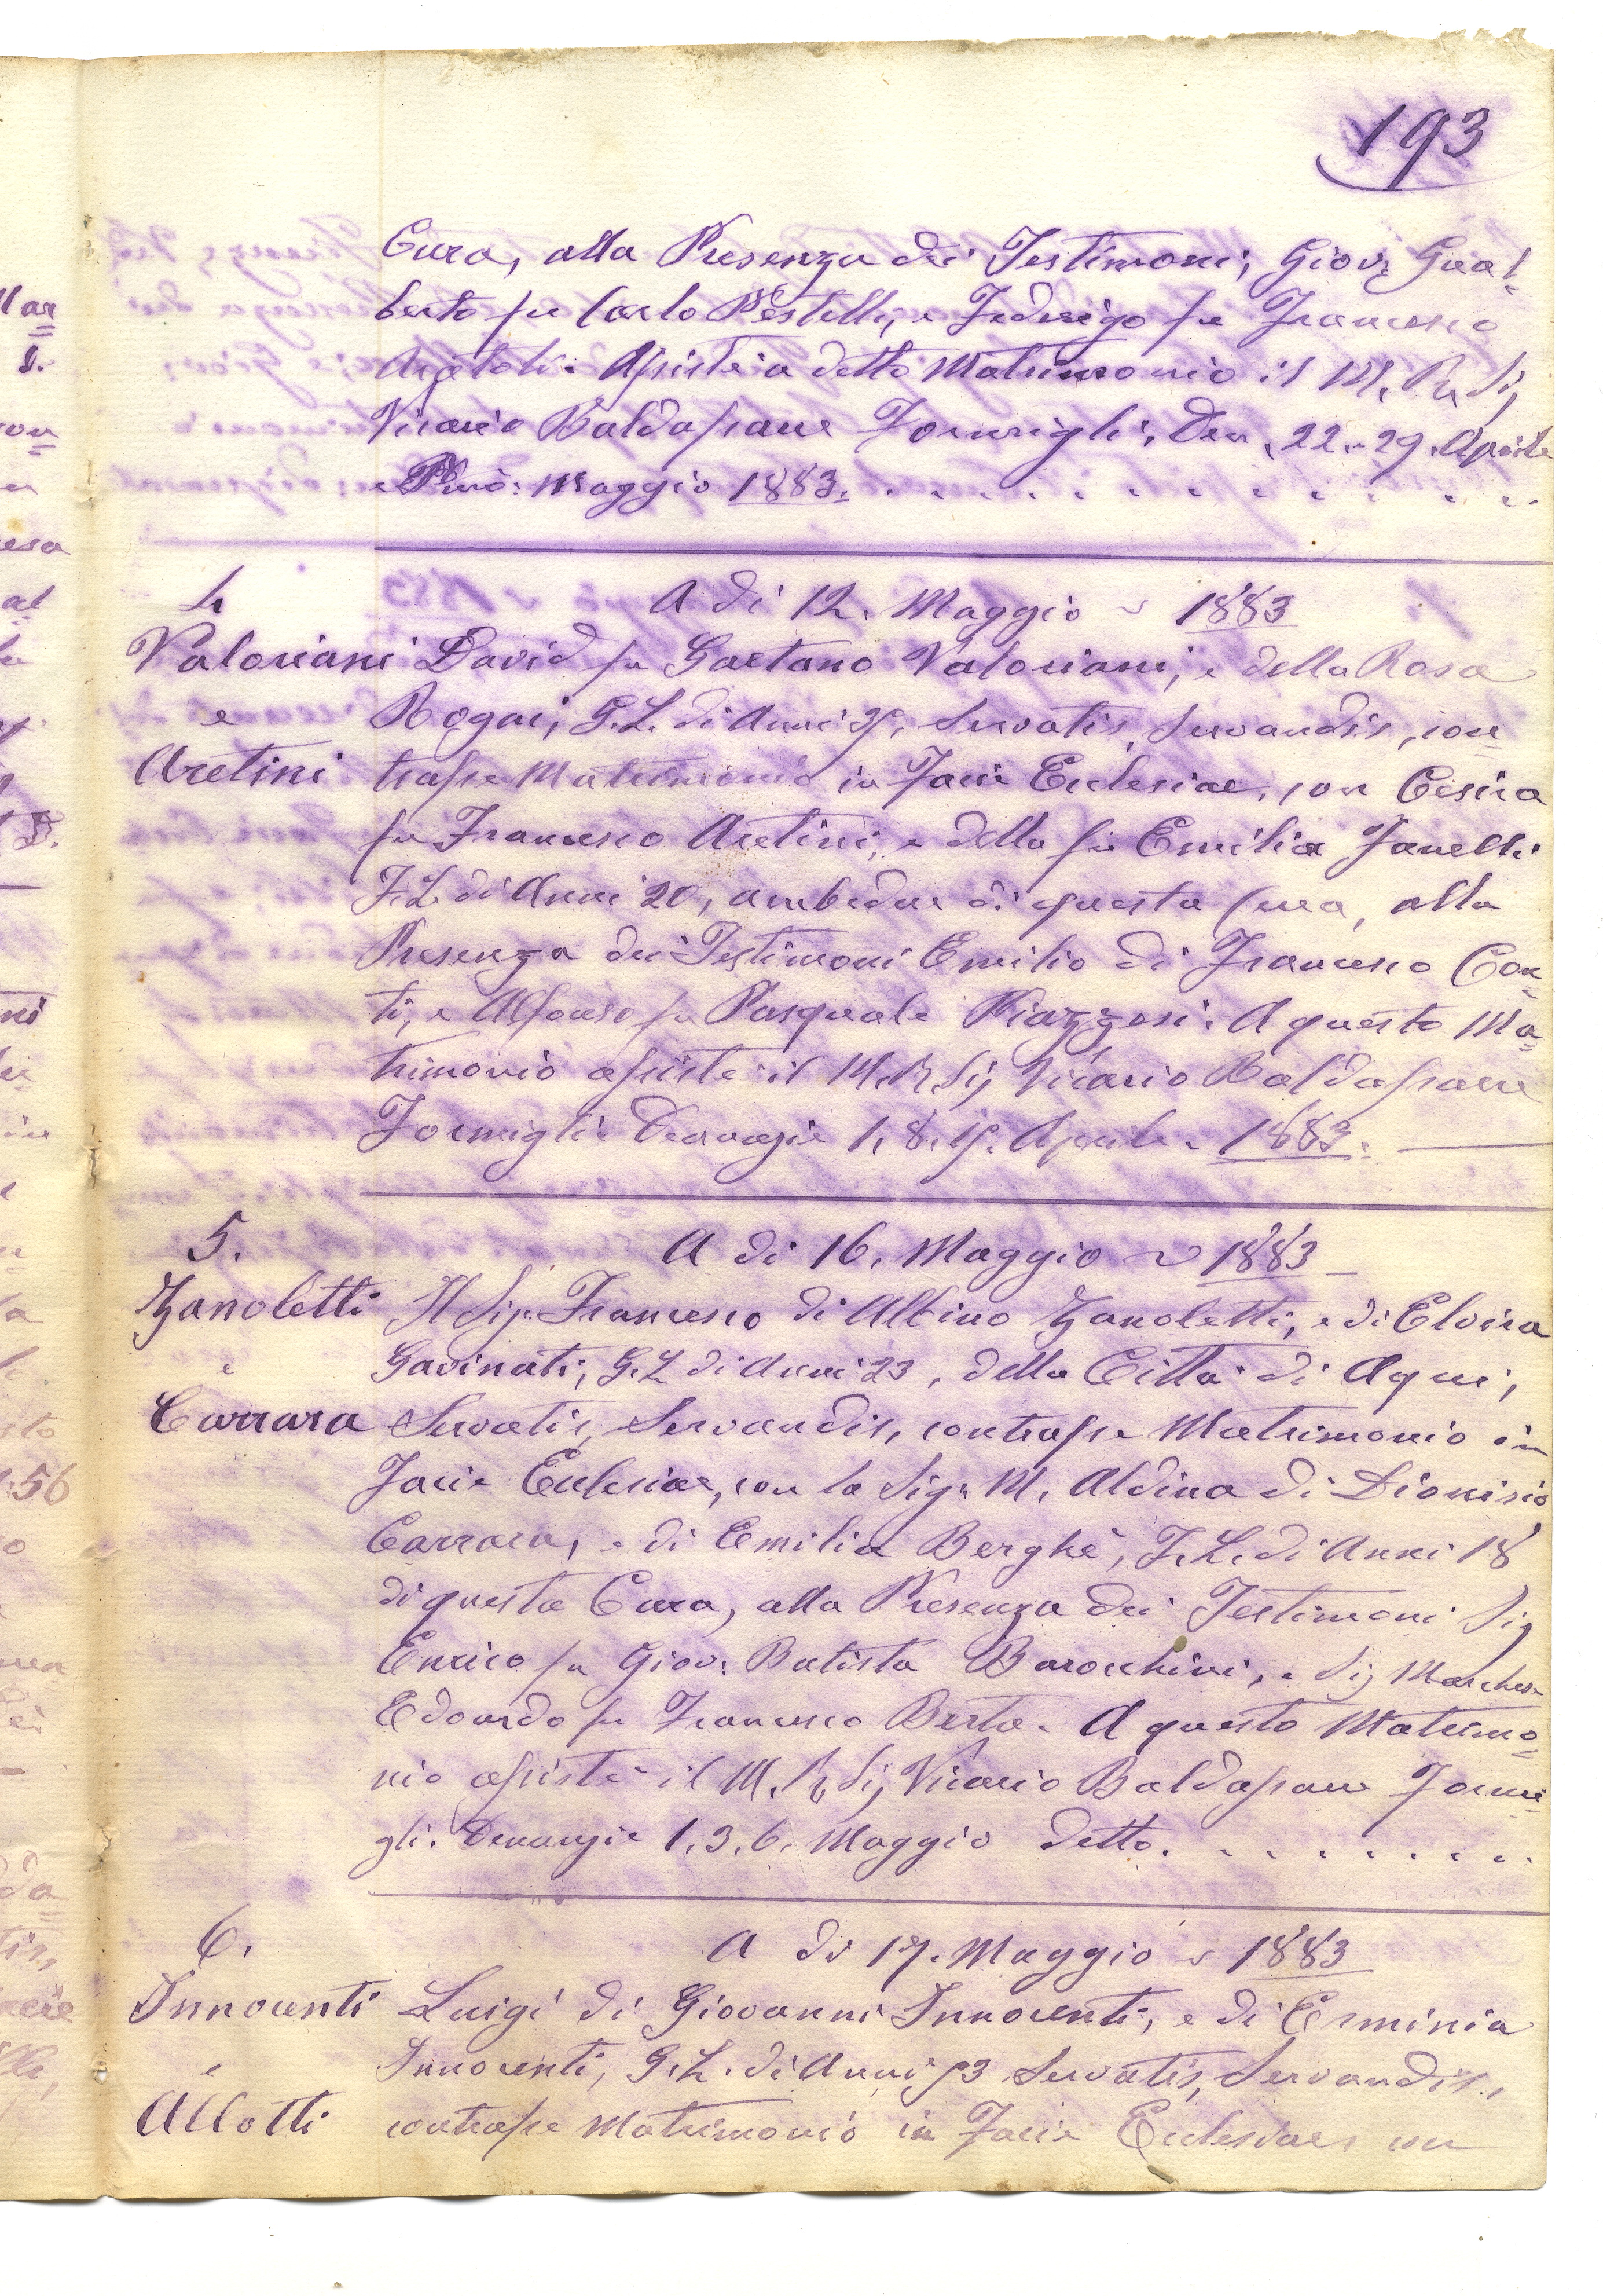 193
Cura, alla Presenza dei Testimoni, Giov: Gual=
berto fu Carlo Pestelli, e Federigo fu Francesco
Assistè a detto Matrimonio il M. R. Sig
Vicario Baldassarre Formigli. Den. 22. 29. Aprile
e Pmo: Maggio 1883.
4
A dì 12. Maggio 1883
Valoriani David fu Gaetano Valoriani, e della Rosa
e Rogai, G.L. di Anni Servatis, Servandis, con=
Aretini trasse Matrimonio in Facie Ecclesiae, con Cesira
fu Francesco Aretini, e della fu Emilia Fanelli
F.L. di Anni 20, ambedue di questa Cura, alla
Presenza dei Testimoni Emilio di Francesco Con=
ti, e Alfonso fu Pasquale Piazzesi. A questo Ma=
trimonio assistè il M. R. Sig Vicario Baldassarre
Formigli. Denunzie 1, 8, 15. Aprile 1883.
5.
A dì 16. Maggio 1883
Zanoletti Il Sig. Francesco di Albino Zanoletti, e di Elvira
e Gavinati, G.L. di Anni 23, della Città di Aqui,
Carrara Servatis, Servandis, contrasse Matrimonio in
Facie Ecclesiae, con la Sig. M. Aldina di Dionisio
Carrara, e di Emilia Berghè, F.L. di Anni 18
di questa Cura, alla Presenza dei Testimoni Sig
Enrico fu Giov: Batista Barocchini, e Sig Marchese
Edoardo fu Francesco Berta. A questo Matrimo=
nio assistè il M. R. Sig Vicario Baldassarre Formi=
gli. Denunzie 1. 3. 6. Maggio detto.
6.
A dì 17. Maggio 1883
Innocenti Luigi di Giovanni Innocenti, e di Erminia
e Innocenti, G.L. di Anni Servatis, Servandis,
Allotti contrasse Matrimonio in Facie Ecclesiae, con